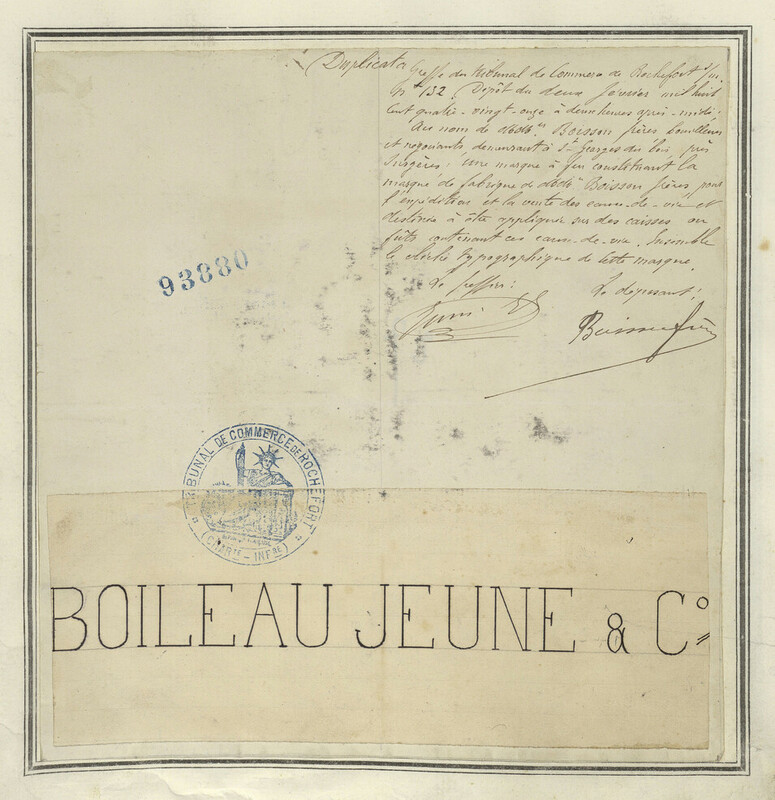 Duplicata
Greffe du tribunal de Commerce de Rochefort s/m.
N° 132. Dépôt du deux février mil huit
cent quatre-vingt-onze à deux heures après-midi.
Au nom de Boisson frères bouilleurs
et négociants demeurant à St Georges du bois près
Surgères: une marque à feu constituant la
marque de fabrique de Boisson frères, pour
l'expédition et la vente des eaux-de-vie et
destinée à être appliquée sur des caisses ou
fûts contenant ces eaux-de-vie. Ensemble
le cliché typographique de cette marque.
Le greffier: Le déposant:
Boisson frères
93880
TRIBUNAL DE COMMERCE DE ROCHEFORT
(CHARTE - INFRE)
BOILEAU JEUNE & Co